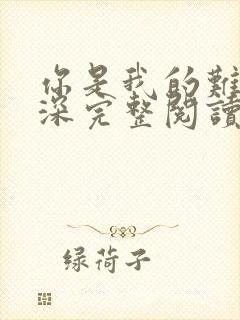 你是我的難
深完整閱讀
绿荷子